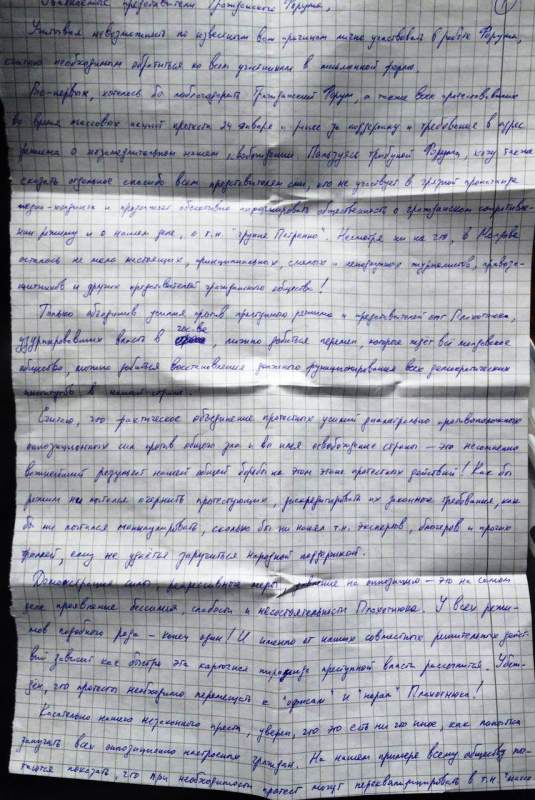 представители Гражданского Форума,
Учитывая невозможность по известным вам причинам лично участвовать в работе Форума,
считаю необходимым обратиться ко всем участникам в письменной форме.
Во-первых, хотелось бы поблагодарить Гражданский Форум, а также всех протестовавших
во время массовых акций протеста 24 января и ранее за поддержку и требование в адрес
режима о незамедлительном нашем освобождении. Пользуясь трибуной Форума, хочу также
сказать отдельное спасибо всем представителям сми, кто не участвует в грязной пропаганде
медиа-холдинга и продолжает объективно информировать общественность о гражданском сопротивле-
нии режиму и о нашем деле, о т.н. "группе Петренко". Несмотря ни на что, в Молдове
осталось не мало настоящих, принципиальных, смелых и неподкупных журналистов, правоза-
щитников и других представителей гражданского общества!
Только объединив усилия против преступного режима и представителей Плахотнюка,
узурпировавших власть в гос-ве, можно добиться перемен, которые ждет всё молдавское
общество, можно добиться восстановления должного функционирования всех демократических
в нашей стране.
Считаю, что фактическое объединение протестных усилий диаметрально противоположных
оппозиционных сил против общего зла и во имя освобождения страны - это несомненно
важнейший результат нашей общей борьбы на этом этапе протестных действий! Как бы
режим не пытался очернить протестующих, дискредитировать их законные требования, как
бы ни пытался манипулировать, сколько бы ни нанял т.н. экспертов, блогеров и прочих
троллей, ему не удастся заручиться народной поддержкой.
Демонстрация силы, репрессивные меры, давление на оппозицию - это на самом
деле проявление бессилия, слабости и несостоятельности Плахотнюка. У всех режи-
мов подобного рода - конец один! И именно от наших совместных решительных дейст-
вий зависит как быстро эта карточная пирамида преступной власти рассыпется. Убеж-
дён, что протесты необходимо перемещать к "офисам" и "норам" Плахотнюка!
Касательно нашего незаконного ареста, уверен, что это есть ни что иное, как попытка
запугать всех оппозиционно настроенных граждан. На нашем примере всему обществу пы-
таются показать, что при необходимости протест могут переквалифицировать в т.н. "массо